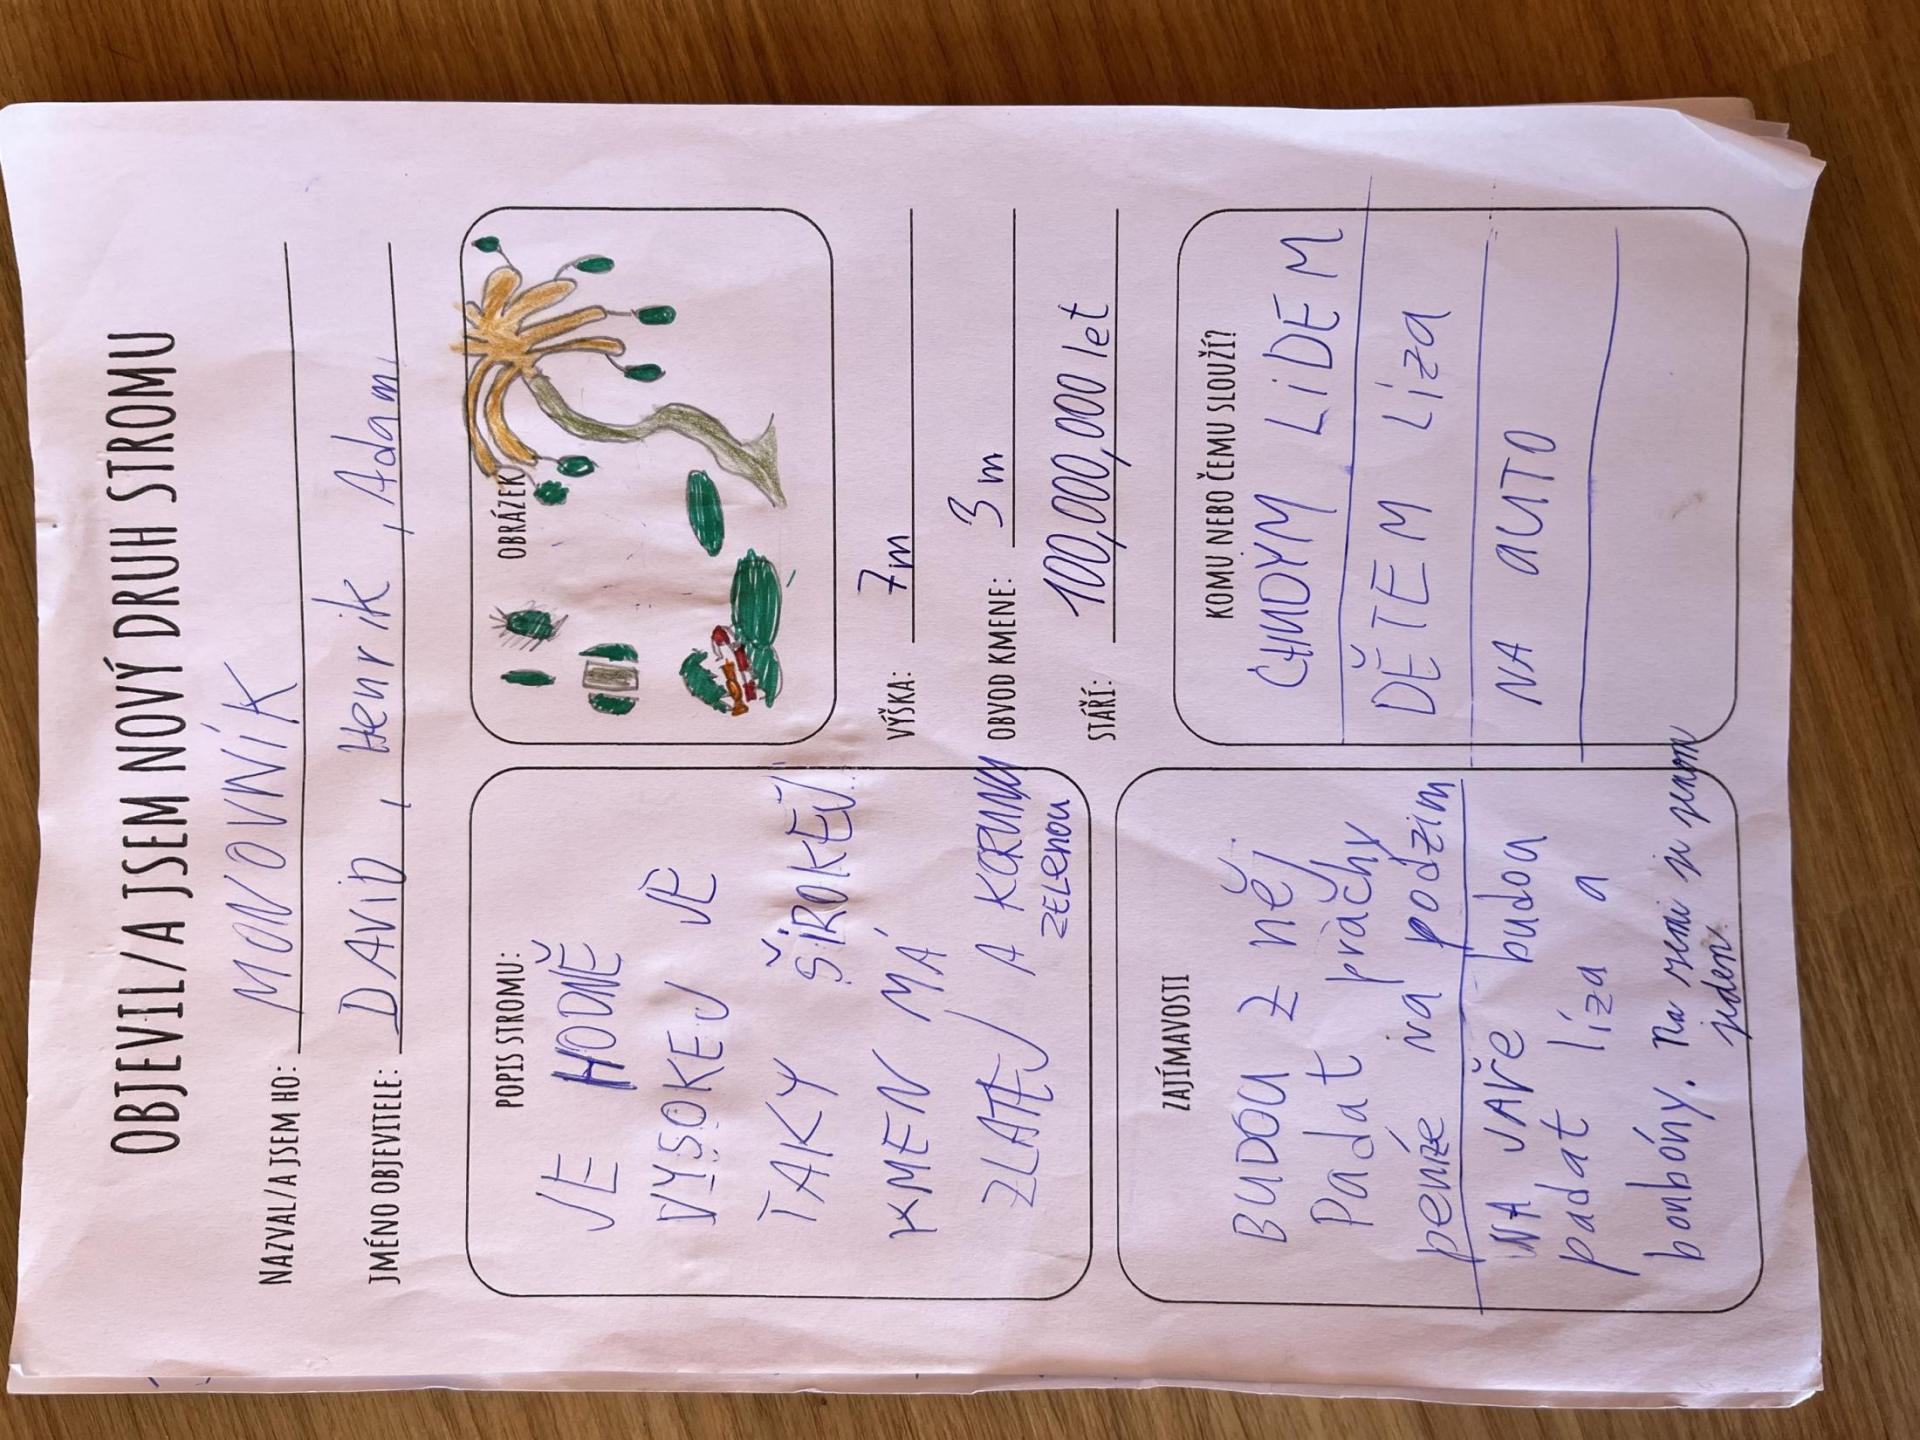 OBJEVIL/A JSEM NOVÝ DRUH STROMU
NAZVAL/A JSEM HO: MONOVNÍK
JMÉNO OBJEVITELE: DAViD, Henrik, Adam
POPIS STROMU:
JE HODNĚ
VYSOKEJ JE
TAKY ŠÍROKEJ
KMEN MÁ
ZLATEJ A KORUNU
ZELENOU
OBRÁZEK
VÝŠKA: 7m
OBVOD KMENE: 3 m
STÁŘÍ: 100,000,000 let
ZAJÍMAVOSTI
BUDOU Z NĚJ
Padat pràchy
peníze na podzim
NA JAŘE budou
padat líza a
bonbóny. Na zemi je jenom
jeden.
KOMU NEBO ČEMU SLOUŽÍ?
CHUDYM LiDEM
DĚTEM Líza
NA AUTO